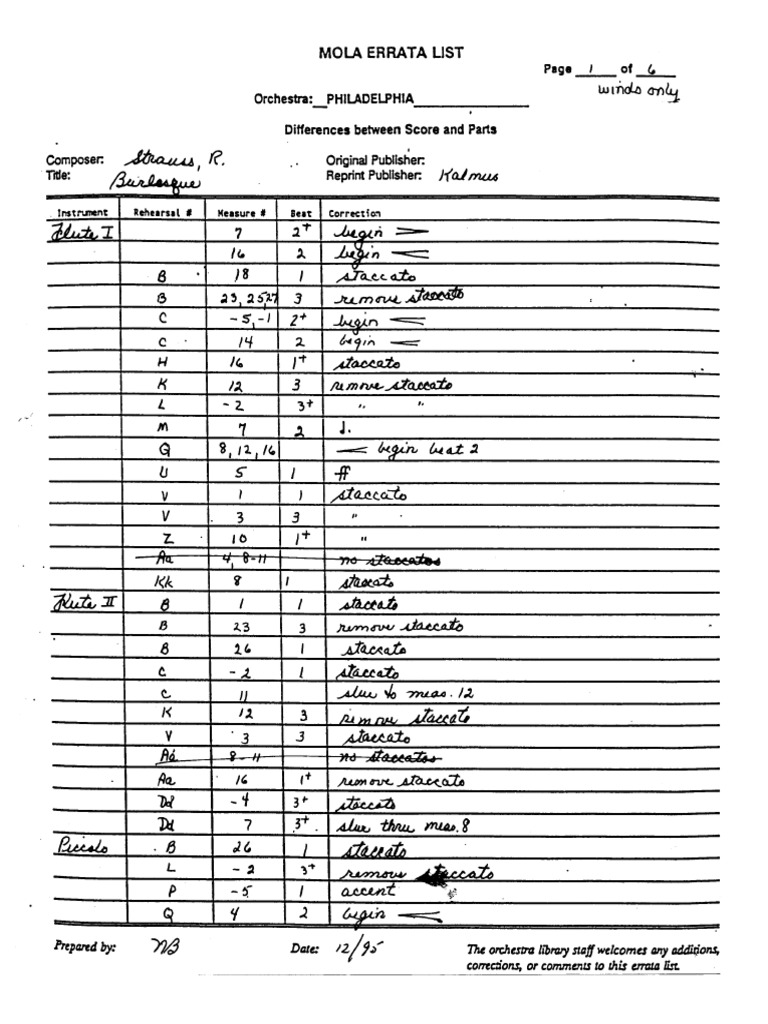 MOLA ERRATA LIST
Page 1 of 6
winds only
Orchestra: PHILADELPHIA
Differences between Score and Parts
Composer: Strauss, R. Original Publisher:
Title: Burlesque Reprint Publisher: Kalmus
Instrument Rehearsal # Measure # Beat Correction
Flute I 7 2+ begin >
16 2 begin <
B 18 1 staccato
B 23, 25, 27 3 remove staccato
C -5, -1 2+ begin <
C 14 2 begin <
H 16 1+ staccato
K 12 3 remove staccato
L -2 3+ " "
M 7 2 𝅗𝅥.
Q 8, 12, 16 < begin beat 2
U 5 1 ff
V 1 1 staccato
V 3 3 "
Z 10 1+ "
Aa 4, 8-11 no staccatos
Kk 8 1 staccato
Flute II B 1 1 staccato
B 23 3 remove staccato
B 26 1 staccato
C -2 1 staccato
C 11 slur to meas. 12
K 12 3 remove staccato
V 3 3 staccato
Aa 8-11 no staccatos
Aa 16 1+ remove staccato
Dd -4 3+ staccato
Dd 7 3+ slur thru meas. 8
Piccolo B 26 1 staccato
L -2 3+ remove staccato
P -5 1 accent
Q 4 2 begin <
Prepared by: NB Date: 12/95 The orchestra library staff welcomes any additions,
corrections, or comments to this errata list.